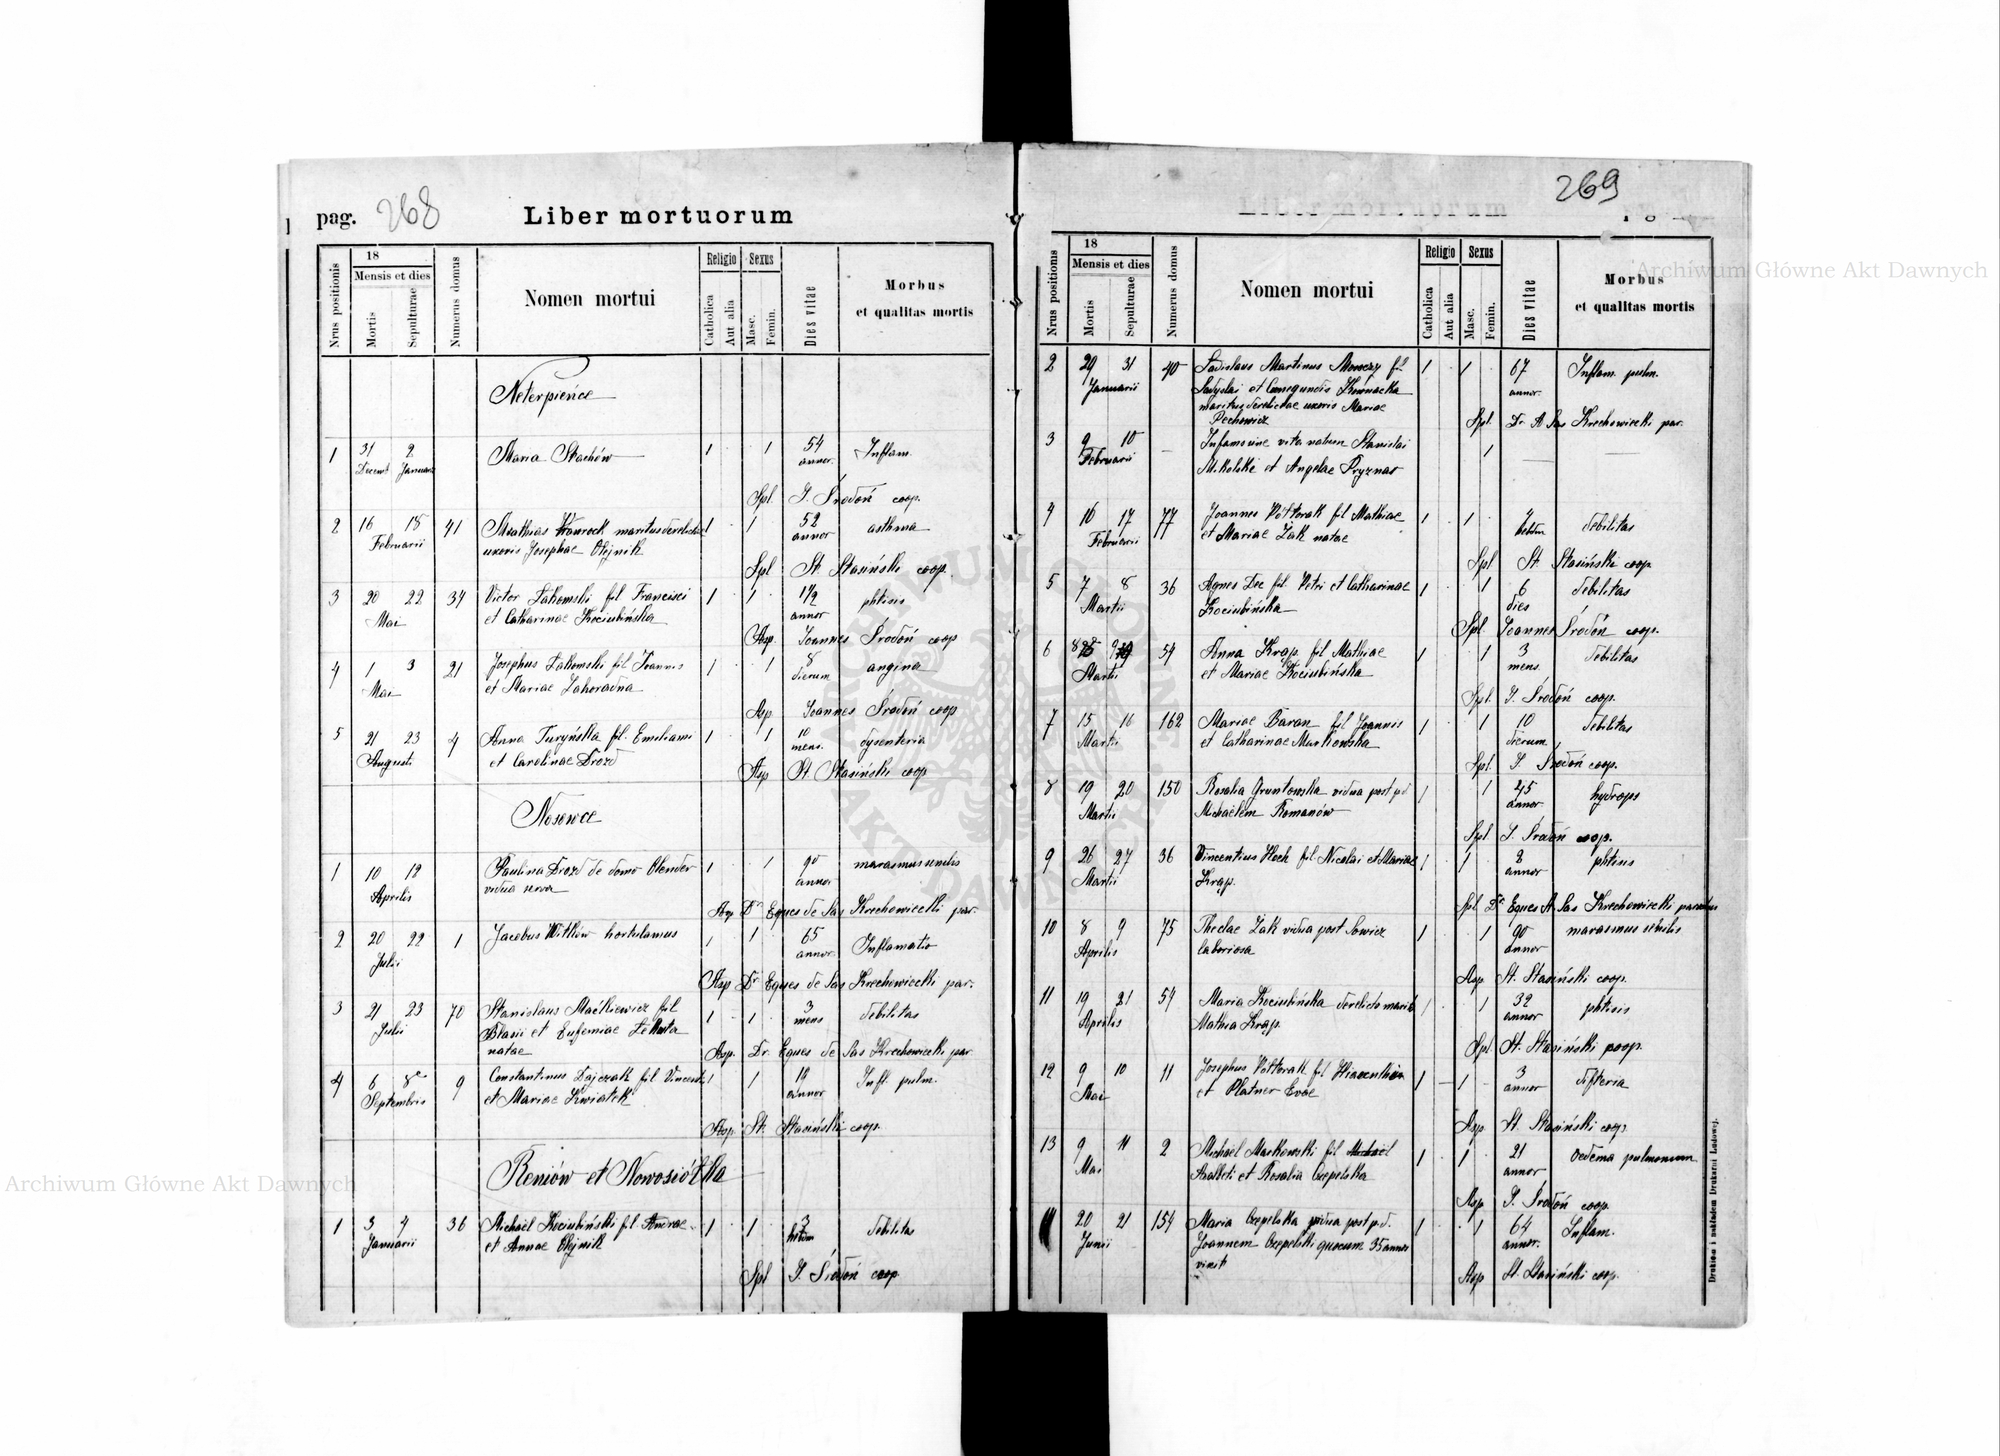 Archiwum Główne Akt Dawnych
pag. 268
Liber mortuorum
Nrus positionis
18
Mensis et dies
Mortis
Sepulturae
Numerus domus
Nomen mortui
Religio
Catholica
Aut alia
Sexus
Masc.
Femin.
Dies vitae
Morbus
et qualitas mortis
Neterpińce
1 31 2 Maria Stachów 1 1 54 Inflam.
Decemb Januar annor.
Spl. J. Środoń coop.
2 16 18 41 Mathias maritus derelictae 1 1 52 asthma
Februarii uxoris Josephae Olejnik annor
Spl St. Stasiński coop.
3 20 22 34 Victor Łakomski fil Francisci 1 1 1 1/2 phtisis
Mai et Catharinae Kociubińska annor
Asp. Joannes Środoń coop
4 1 3 21 Josephus Łakomski fil Joannis 1 1 8 angina
Mai et Mariae Zahoradna dierum
Asp Joannes Środoń coop
5 21 23 4 Anna Turyńska fil. Emiliani 1 1 10 dysenteria
Augusti et Carolinae Drozd mens.
Asp St. Stasiński coop
Nosowce
1 10 12 Paulina Drozd de domo Olender 1 1 90 marasmus senilis
Aprilis vidua annor
Asp Dr Eques de Sas Krechowiecki par.
2 20 22 1 Jacobus Witków hortulanus 1 1 65 Inflamatio
Julii annor
Asp Dr Eques de Sas Krechowiecki par.
3 21 23 70 Stanislaus Maćkiewicz fil 1 1 3 debilitas
Julii Blasii et Eufemiae mens
natae
Asp. Dr. Eques de Sas Krechowiecki par
4 6 8 9 Constantinus Dajczak fil Vincenti 1 1 Infl. pulm.
Septembris et Mariae Kwiatek annor
Asp. St. Stasiński coop.
Reniów et Nowosiółka
1 3 4 36 Michaël Kociubiński fil Andreae 1 1 3 debilitas
Januarii et Annae Olejnik hebdom
Spl J. Środoń coop
Archiwum Główne Akt Dawnych
269
Nrus positionis
18
Mensis et dies
Mortis
Sepulturae
Numerus domus
Nomen mortui
Religio
Catholica
Aut alia
Sexus
Masc.
Femin.
Dies vitae
Morbus
et qualitas mortis
2 29 31 40 Ladislaus Martinus fil 1 1 67 Inflam. pulm.
Januarii et Cunegundis annor.
maritus derelictae uxoris Mariae
Pechowicz Spl. Dr. A Sas Krechowiecki par.
3 9 10 Infans sine vita natum Stanislai 1
Februarii Mikolski et Angelae Pryznar
4 16 17 77 Joannes Półtorak fil Mathiae 1 1 debilitas
Februarii et Mariae Żak natae hebdm
Spl St. Stasiński coop
5 7 8 36 Agnes Dec fil. Petri et Catharinae 1 1 6 debilitas
Martii Kociubińska dies
Spl. Joannes Środoń coop.
6 8 9 54 Anna Krąp fil Mathiae 1 1 3 debilitas
Martii et Mariae Kociubińska mens.
Spl. J. Środoń coop.
7 15 16 162 Mariae Baran fil Joannis 1 1 10 debilitas
Martii et Catharinae Markowska dierum
Spl. J. Środoń coop.
8 19 20 150 Rosalia Gruntowska vidua post p.d 1 1 45 hydrops
Martii Michaëlem Romanów annor
Spl J. Środoń coop.
9 26 27 36 Vincentius Hoch fil Nicolai et Mariae 1 1 2 phtisis
Martii Krąp. annor
Spl Dr Eques A. Sas Krechowiecki parochus
10 8 9 75 Theclae Żak vidua post Sowicz 1 90 marasmus senilis
Aprilis laboriosa annor
Asp St. Stasiński coop.
11 19 21 54 Maria Kociubińska derelicto marito 1 1 32 phtisis
Aprilis Mathia Krąp. annor
Spl. St. Stasiński coop.
12 9 10 11 Josephus Półtorak fil Hiacenthi 1 1 3 difteria
Mai et Platner Evae annor
Asp. St. Stasiński coop.
13 9 11 2 Michaël Markowski fil 1 1 21 oedema pulmonum
Mai Adalberti et Rosalia Czepelska annor
Asp J. Środoń coop.
14 20 21 154 Maria Czepelska vidua post p.d. 1 1 64 Inflam.
Junii Joannem Czepelski quocum 35 annor annor.
vixit
Asp St. Stasiński coop.
Drukiem i nakładem Drukarni Ludowej.